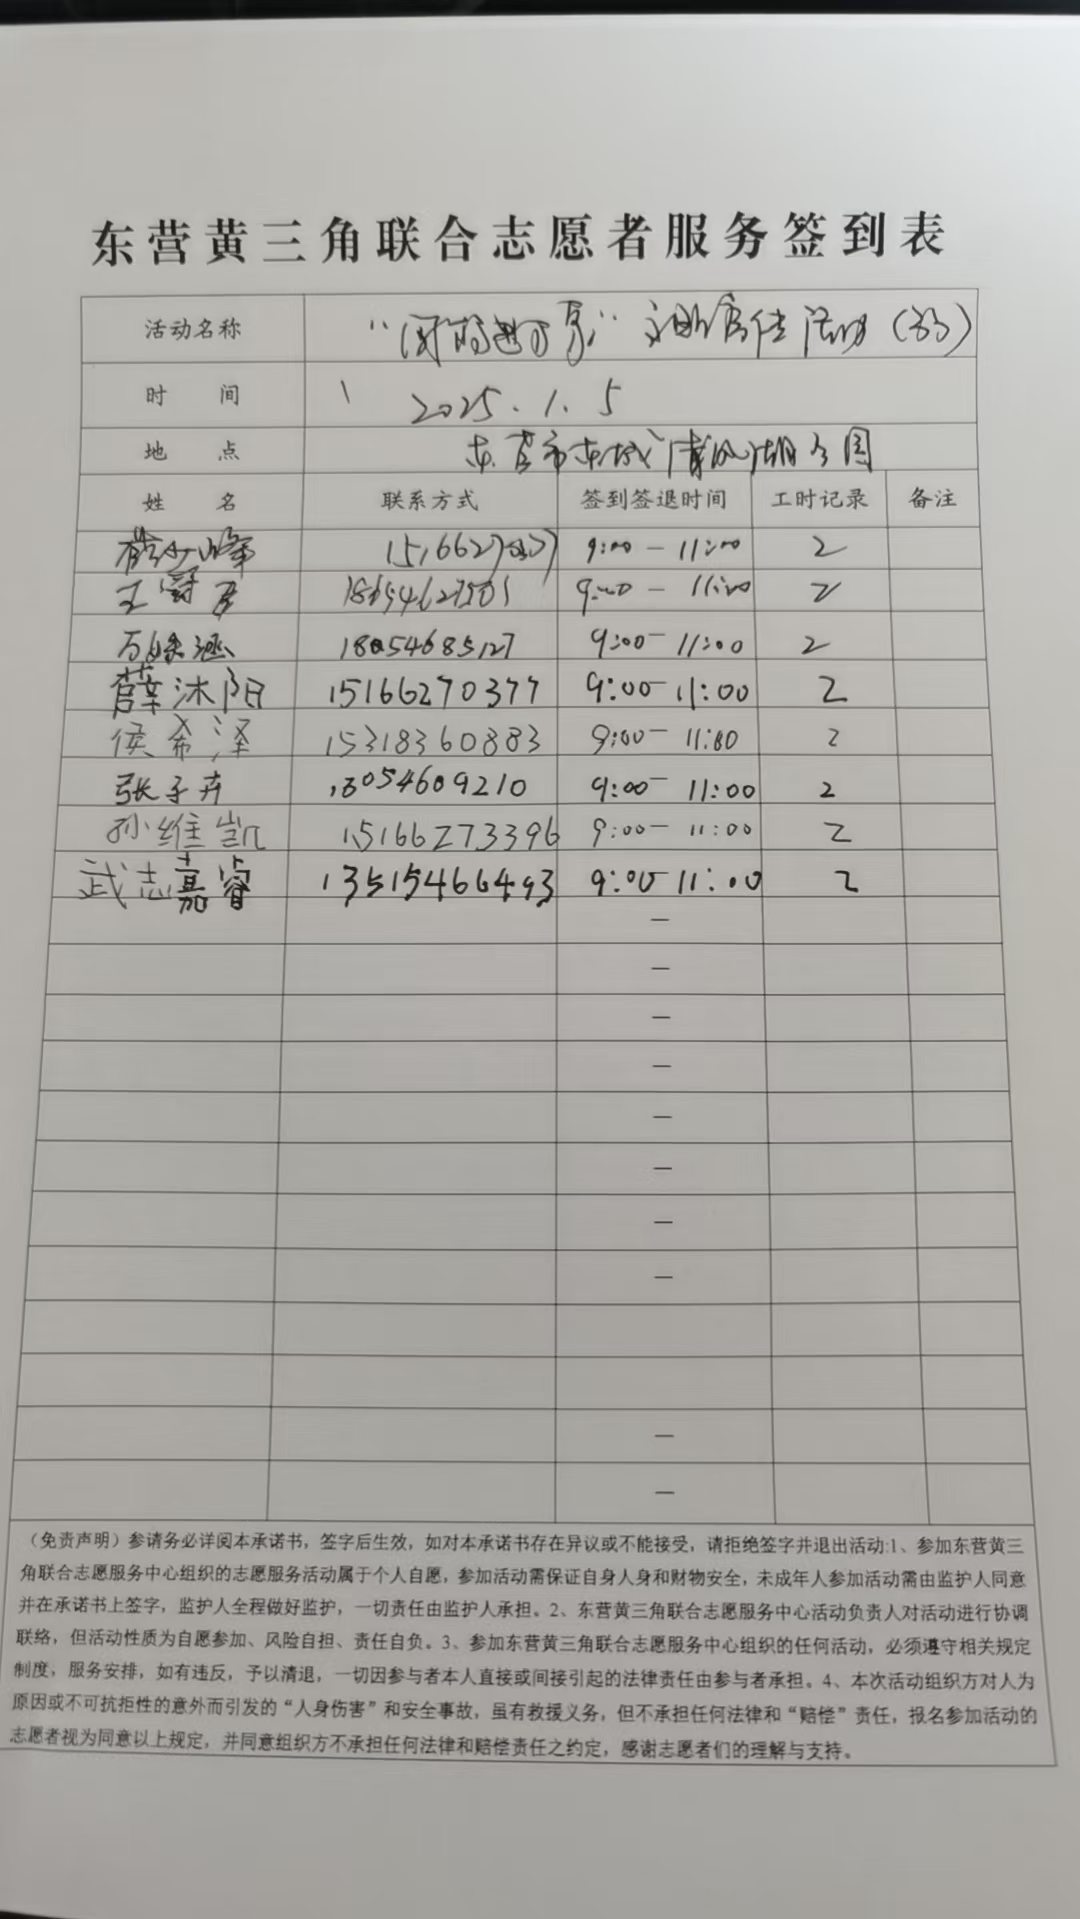 东营黄三角联合志愿者服务签到表
活动名称 活动
时 间 2025.1.5
地 点 东营市东城清风湖公园
姓 名 联系方式 签到签退时间 工时记录 备注
9:00-11:00 2
王 9:00-11:00 2
万 涵 18054685127 9:00-11:00 2
薛沐阳 15166270377 9:00-11:00 2
侯希泽 15318360883 9:00-11:00 2
张子卉 18054609210 9:00-11:00 2
孙维凯 15166273396 9:00-11:00 2
武志嘉睿 13515466493 9:00 11:00 2
—
—
—
—
—
—
—
—
—
—
（免责声明）参请务必详阅本承诺书，签字后生效，如对本承诺书存在异议或不能接受，请拒绝签字并退出活动:1、参加东营黄三
角联合志愿服务中心组织的志愿服务活动属于个人自愿，参加活动需保证自身人身和财物安全，未成年人参加活动需由监护人同意
并在承诺书上签字，监护人全程做好监护，一切责任由监护人承担。2、东营黄三角联合志愿服务中心活动负责人对活动进行协调
联络，但活动性质为自愿参加、风险自担、责任自负。3、参加东营黄三角联合志愿服务中心组织的任何活动，必须遵守相关规定
制度，服务安排，如有违反，予以清退，一切因参与者本人直接或间接引起的法律责任由参与者承担。4、本次活动组织方对人为
原因或不可抗拒性的意外而引发的“人身伤害”和安全事故，虽有救援义务，但不承担任何法律和“赔偿”责任，报名参加活动的
志愿者视为同意以上规定，并同意组织方不承担任何法律和赔偿责任之约定，感谢志愿者们的理解与支持。